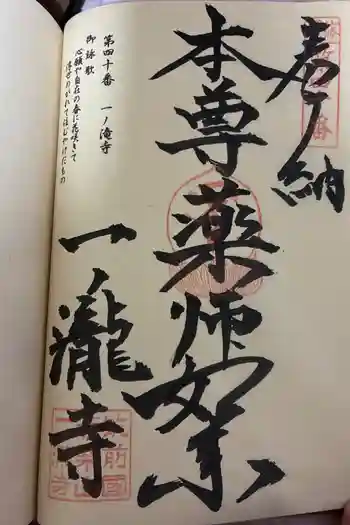 奉納
本尊薬師如来
第四十番　一ノ滝寺
御詠歌
心願や自在の春に花咲きて
浮世のがれて住むやけだもの
一ノ瀧寺